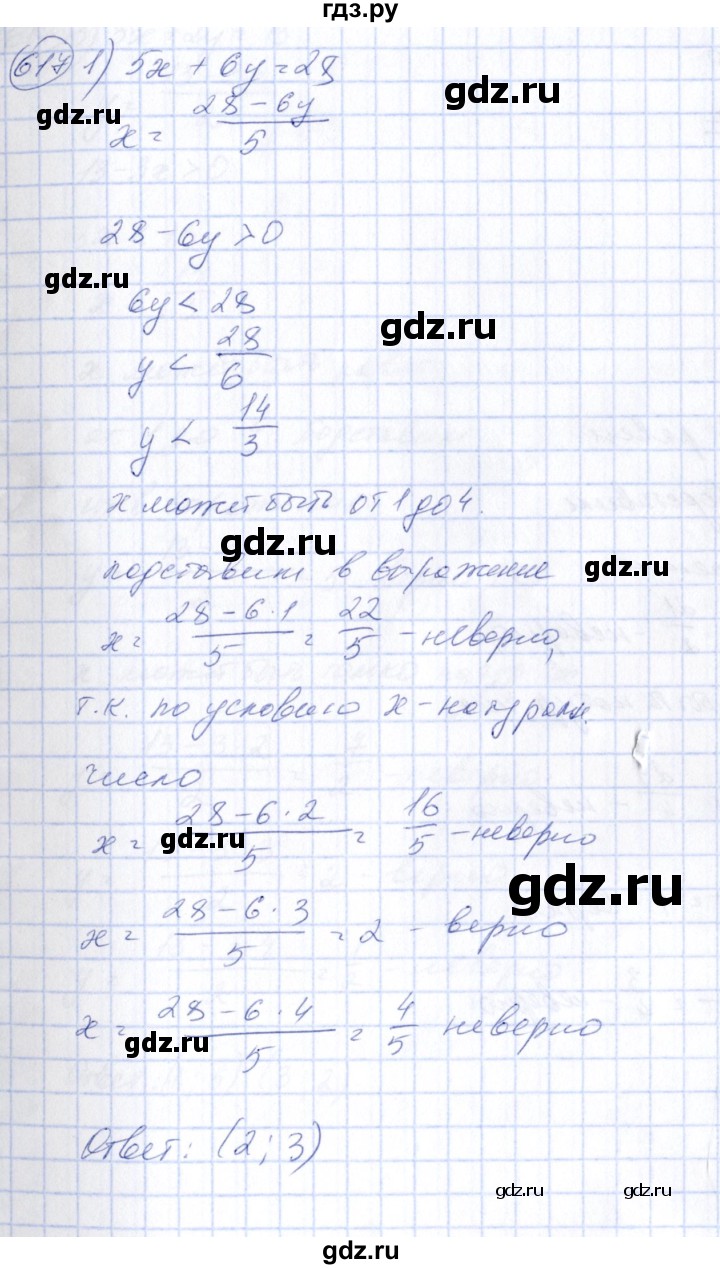 гдз.ру
617 1) 5x + 6y = 28
gdz.ru
gdz.ru
x = (28 - 6y)/5
28 - 6y > 0
gdz.ru
6y < 28
gdz.ru
y < 28/6
y < 14/3
x может быть от 1 до 4.
gdz.ru
подставим в выражение
gdz.ru
x = (28 - 6·1)/5 = 22/5 - неверно,
т.к. по условию x - натуральн.
число
x = (28 - 6·2)/5 = 16/5 - неверно
gdz.ru
gdz.ru
x = (28 - 6·3)/5 = 2 - верно
x = (28 - 6·4)/5 = 4/5 неверно
gdz.ru
Ответ: (2; 3)
gdz.ru
gdz.ru
gdz.ru